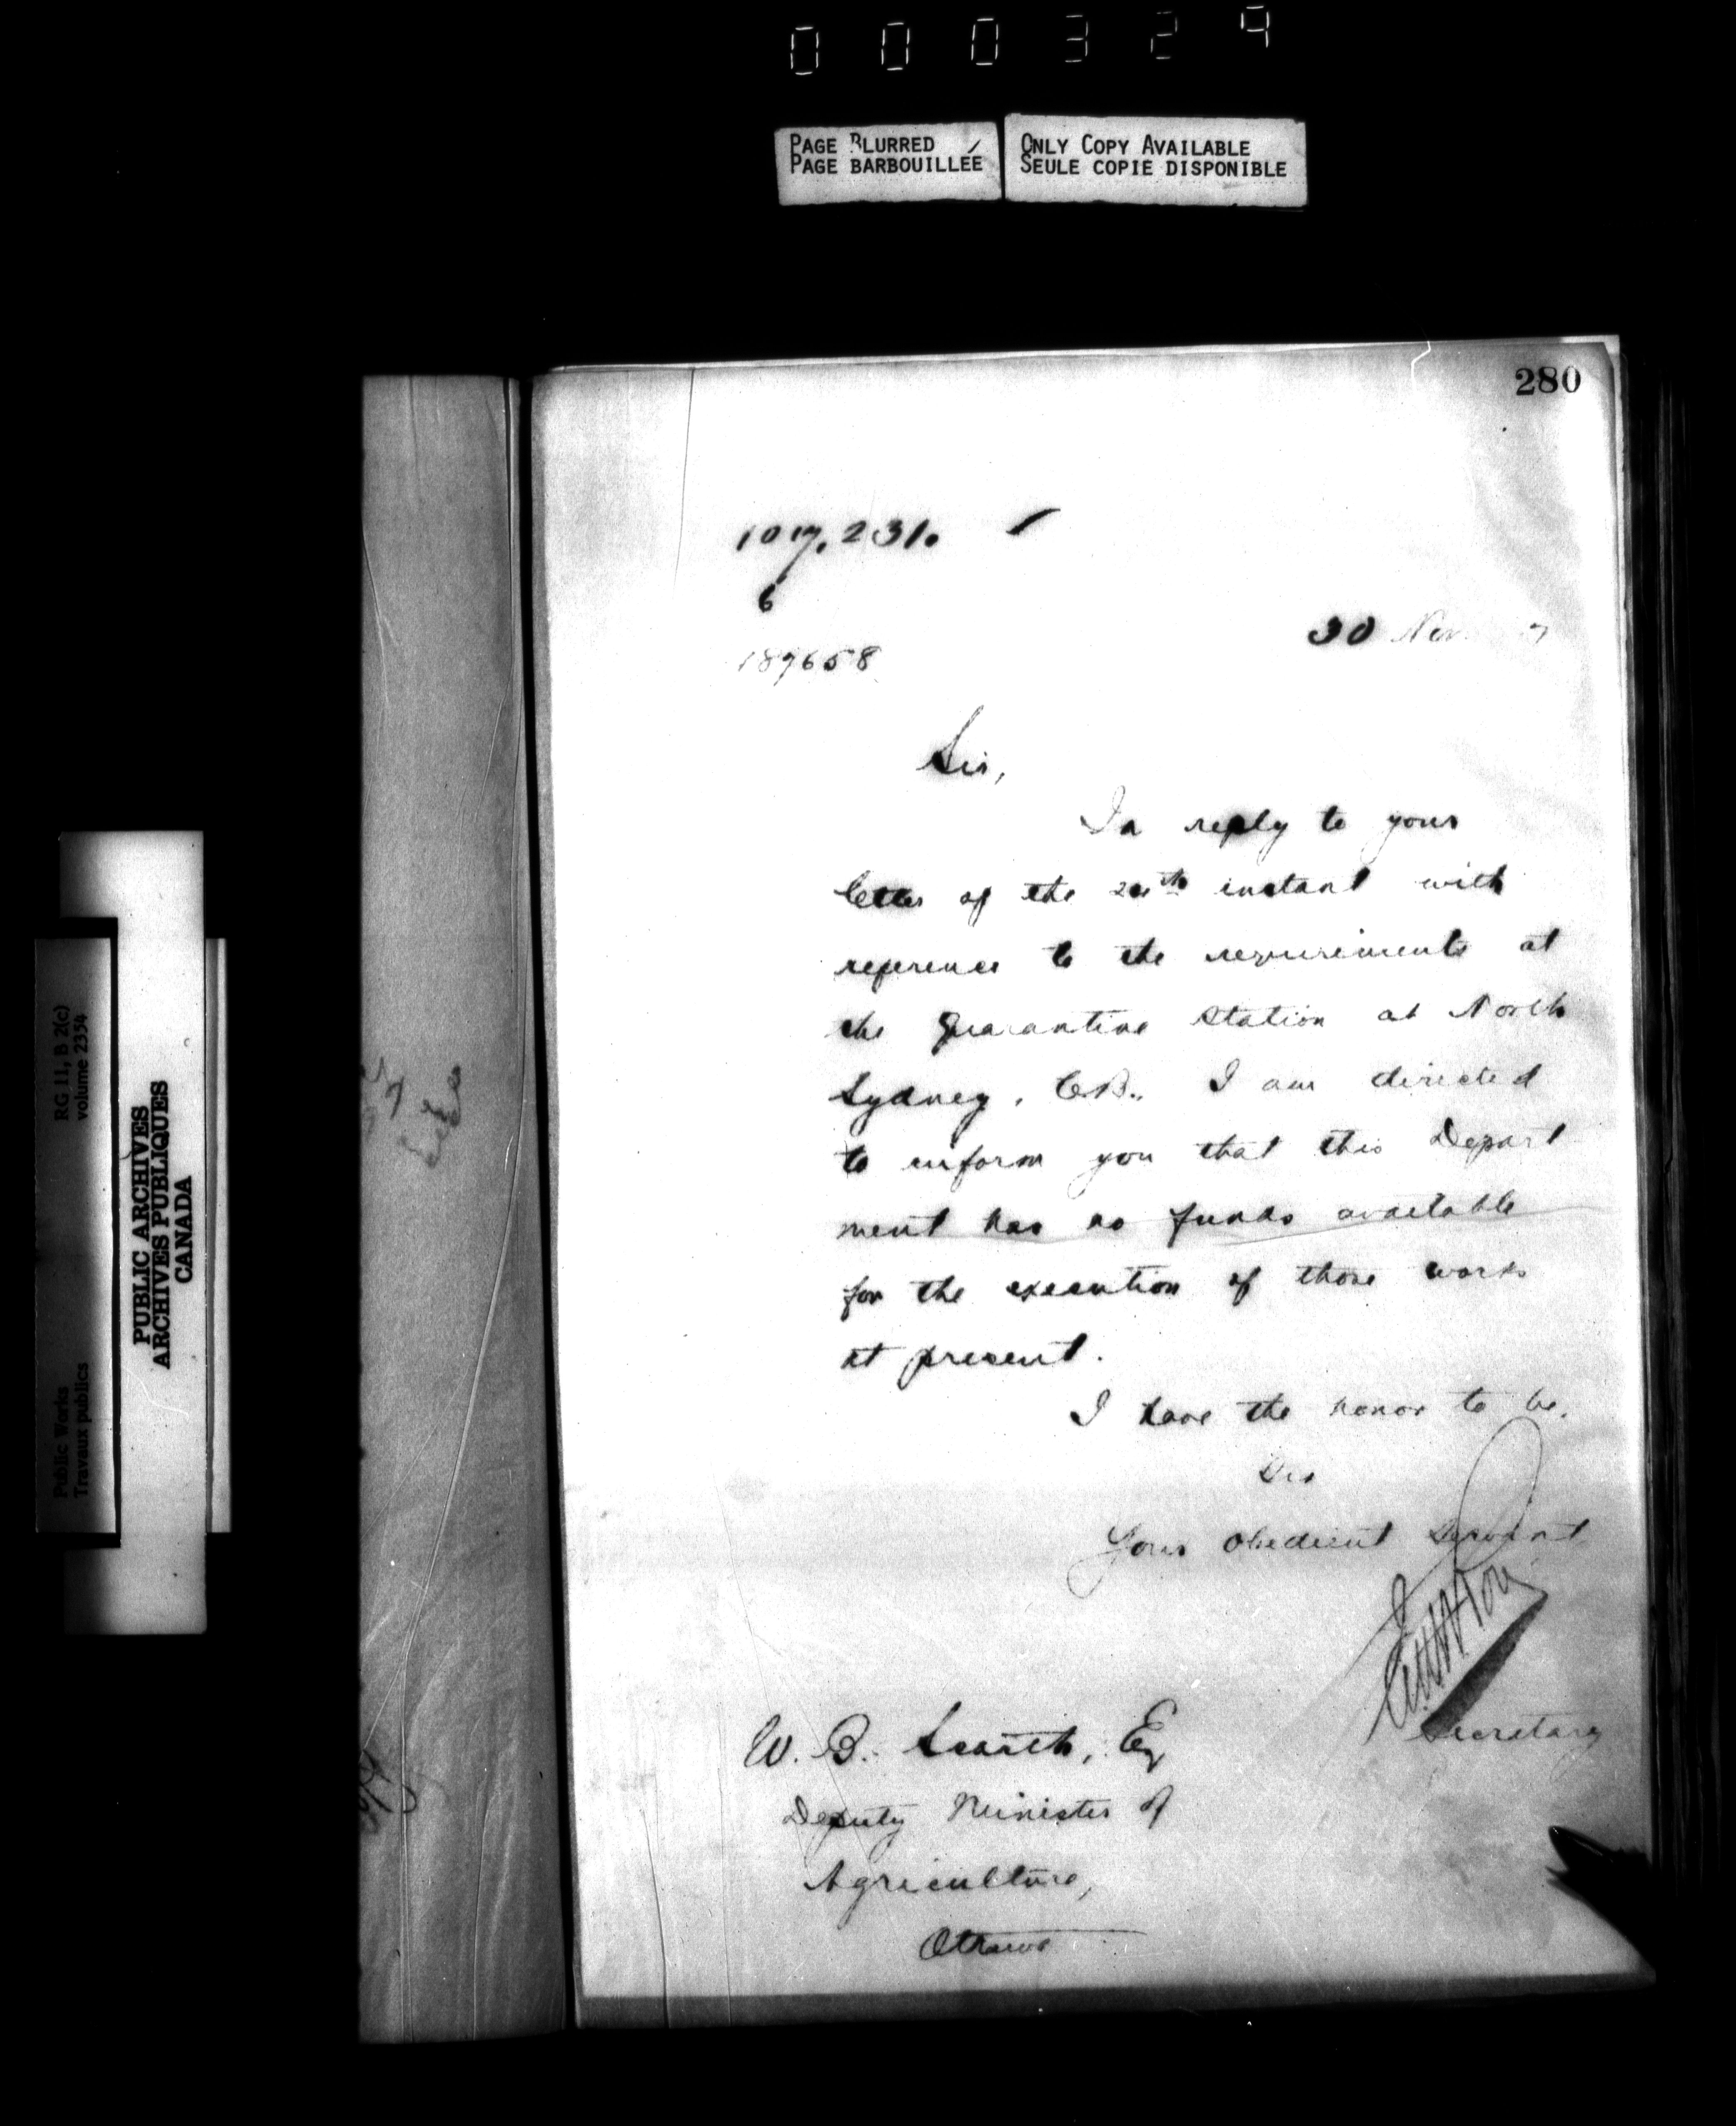 000324
PAGE BLURRED
PAGE BARBOUILLÉE
ONLY COPY AVAILABLE
SEULE COPIE DISPONIBLE
280
107,231.
6
189658
30 Nov 7
Sir,
In reply to your
letter of the instant with
reference to the requirements at
the Quarantine Station at North
Sydney, C.B., I am directed
to inform you that this Depart
ment has no funds available
for the execution of those works
at present.
I have the honor to be,
Sir
Your Obedient Servant
Secretary
W. B. Scarth, Esq
Deputy Minister of
Agriculture,
Ottawa
RG 11, B 2(c)
volume 2354
Public Works
Travaux publics
PUBLIC ARCHIVES
ARCHIVES PUBLIQUES
CANADA